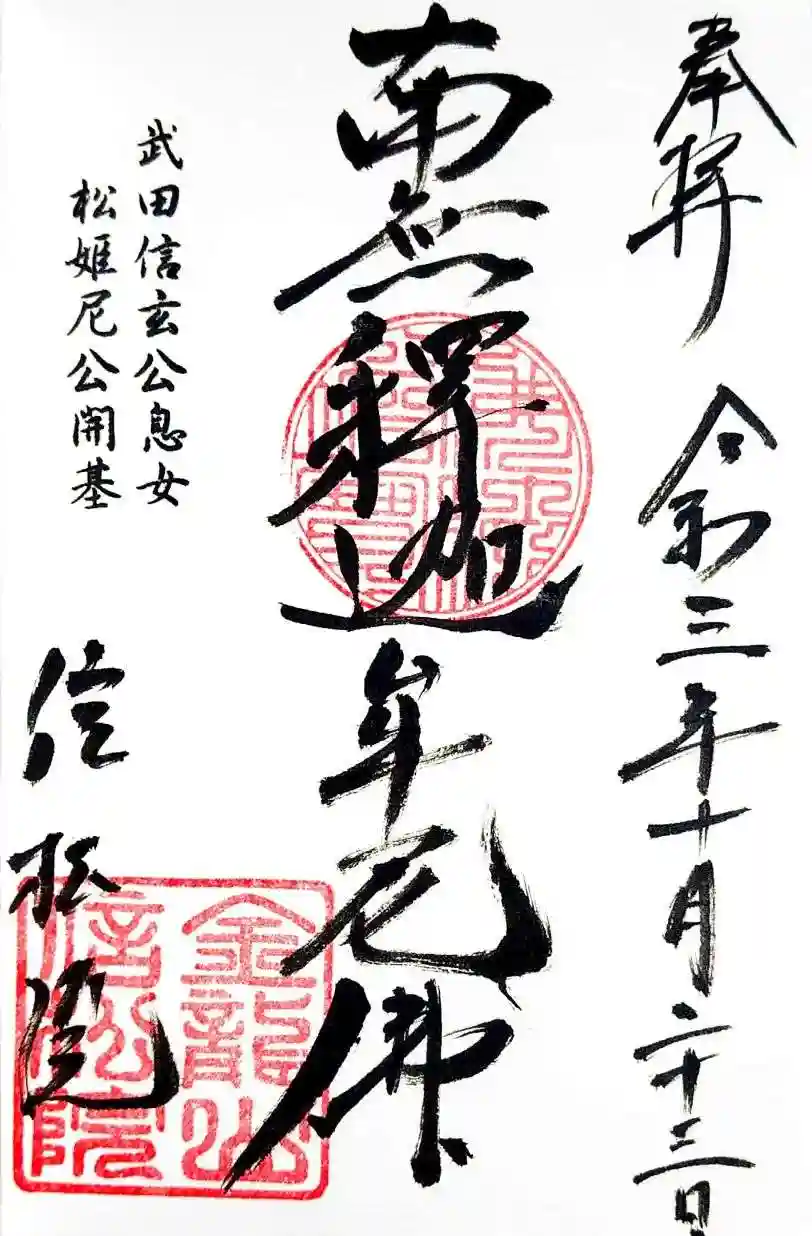 奉拝
令和三年十月二十三日
南無釋迦牟尼佛
武田信玄公息女
松姫尼公開基
信松院
金龍山
信松院